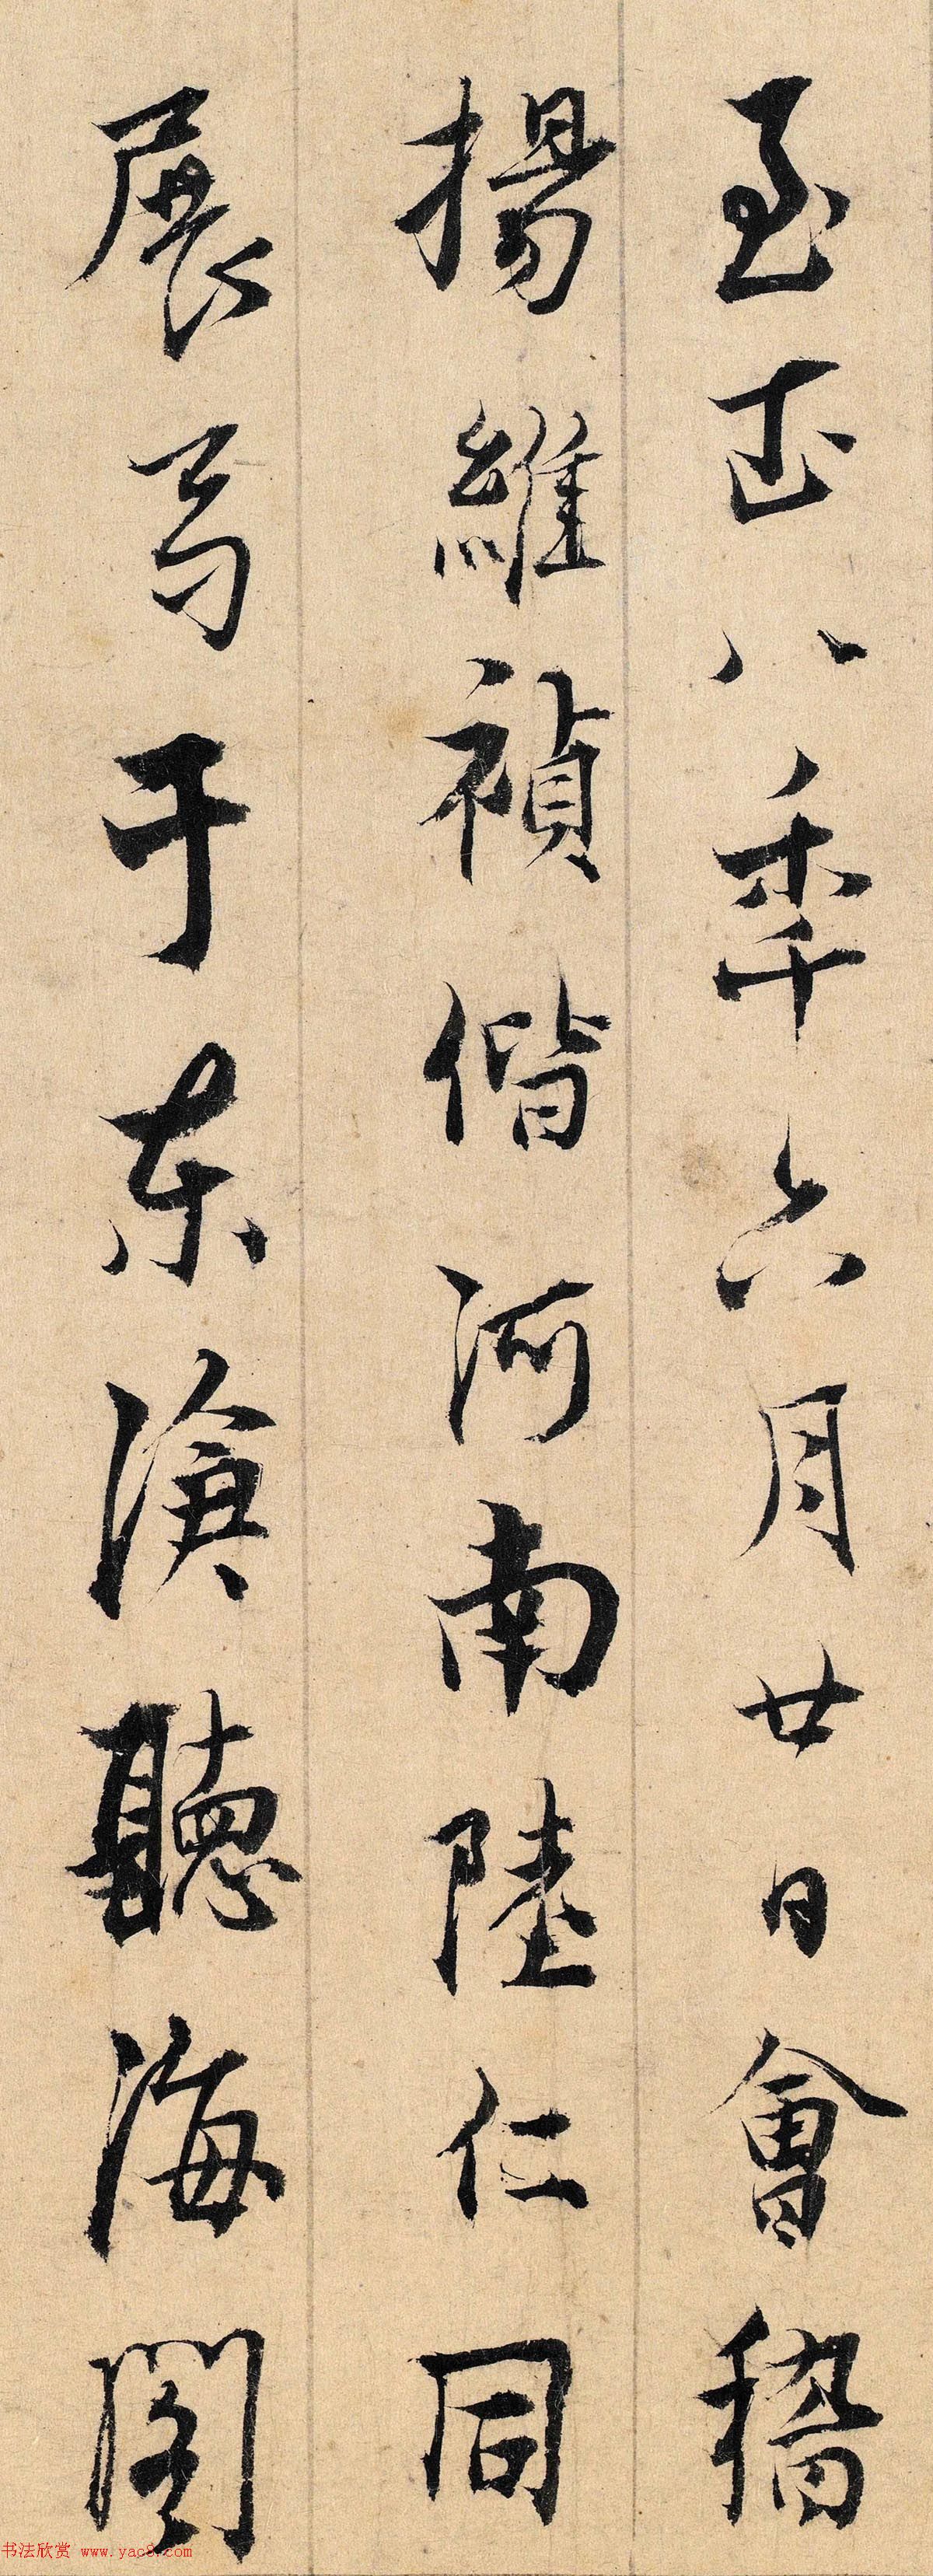 至正八秊六月廿日會稽
楊維禎偕河南陸仁同
展易于東滄聽海閣
书法欣赏 www.yac8.com